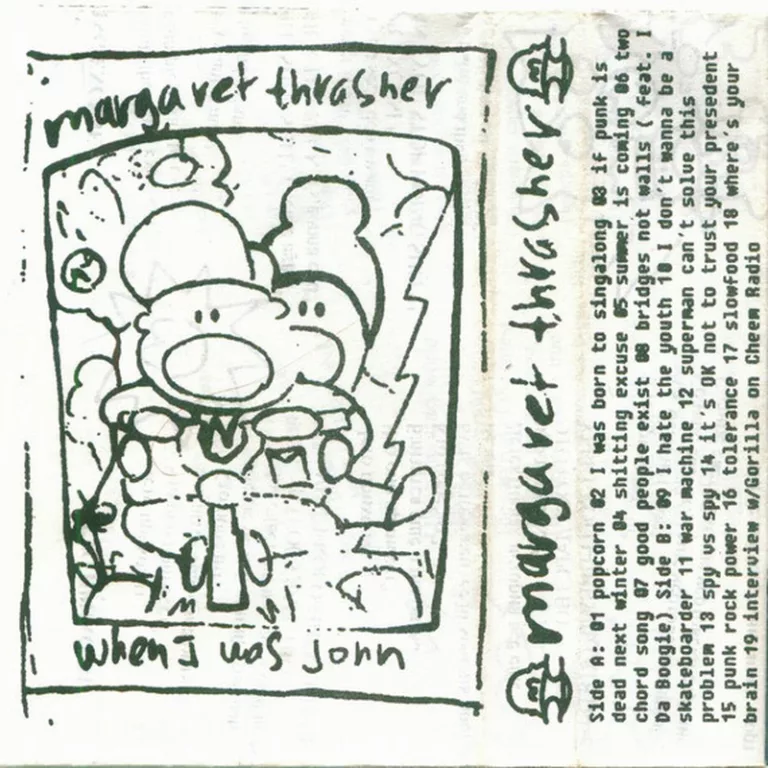 margaret thrasher
when I was John
margaret thrasher
Side A: 01 popcorn 02 I was born to singalong 03 if punk is
dead next winter 04 shitting excuse 05 summer is coming 06 two
chord song 07 good people exist 08 bridges not walls (feat. I
Da Boogie) Side B: 09 I hate the youth 10 I don't wanna be a
skateboarder 11 war machine 12 superman can't solve this
problem 13 spy vs spy 14 it's OK not to trust your presedent
15 punk rock power 16 tolerance 17 slowfood 18 where's your
brain 19 interview w/Gorilla on Cheem Radio